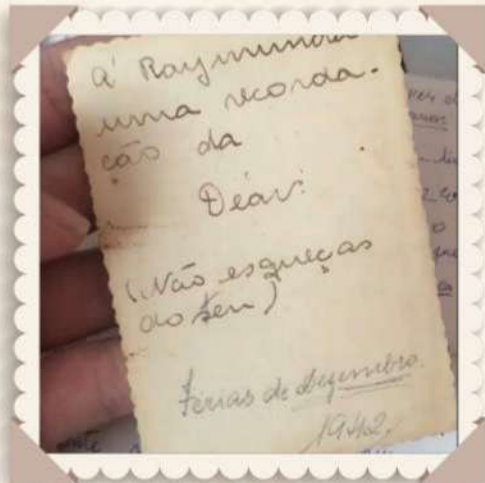 á Raymunda
uma recorda-
ção da
Déar:
(Não esqueças
do seu)
Férias de Dezembro.
1942.